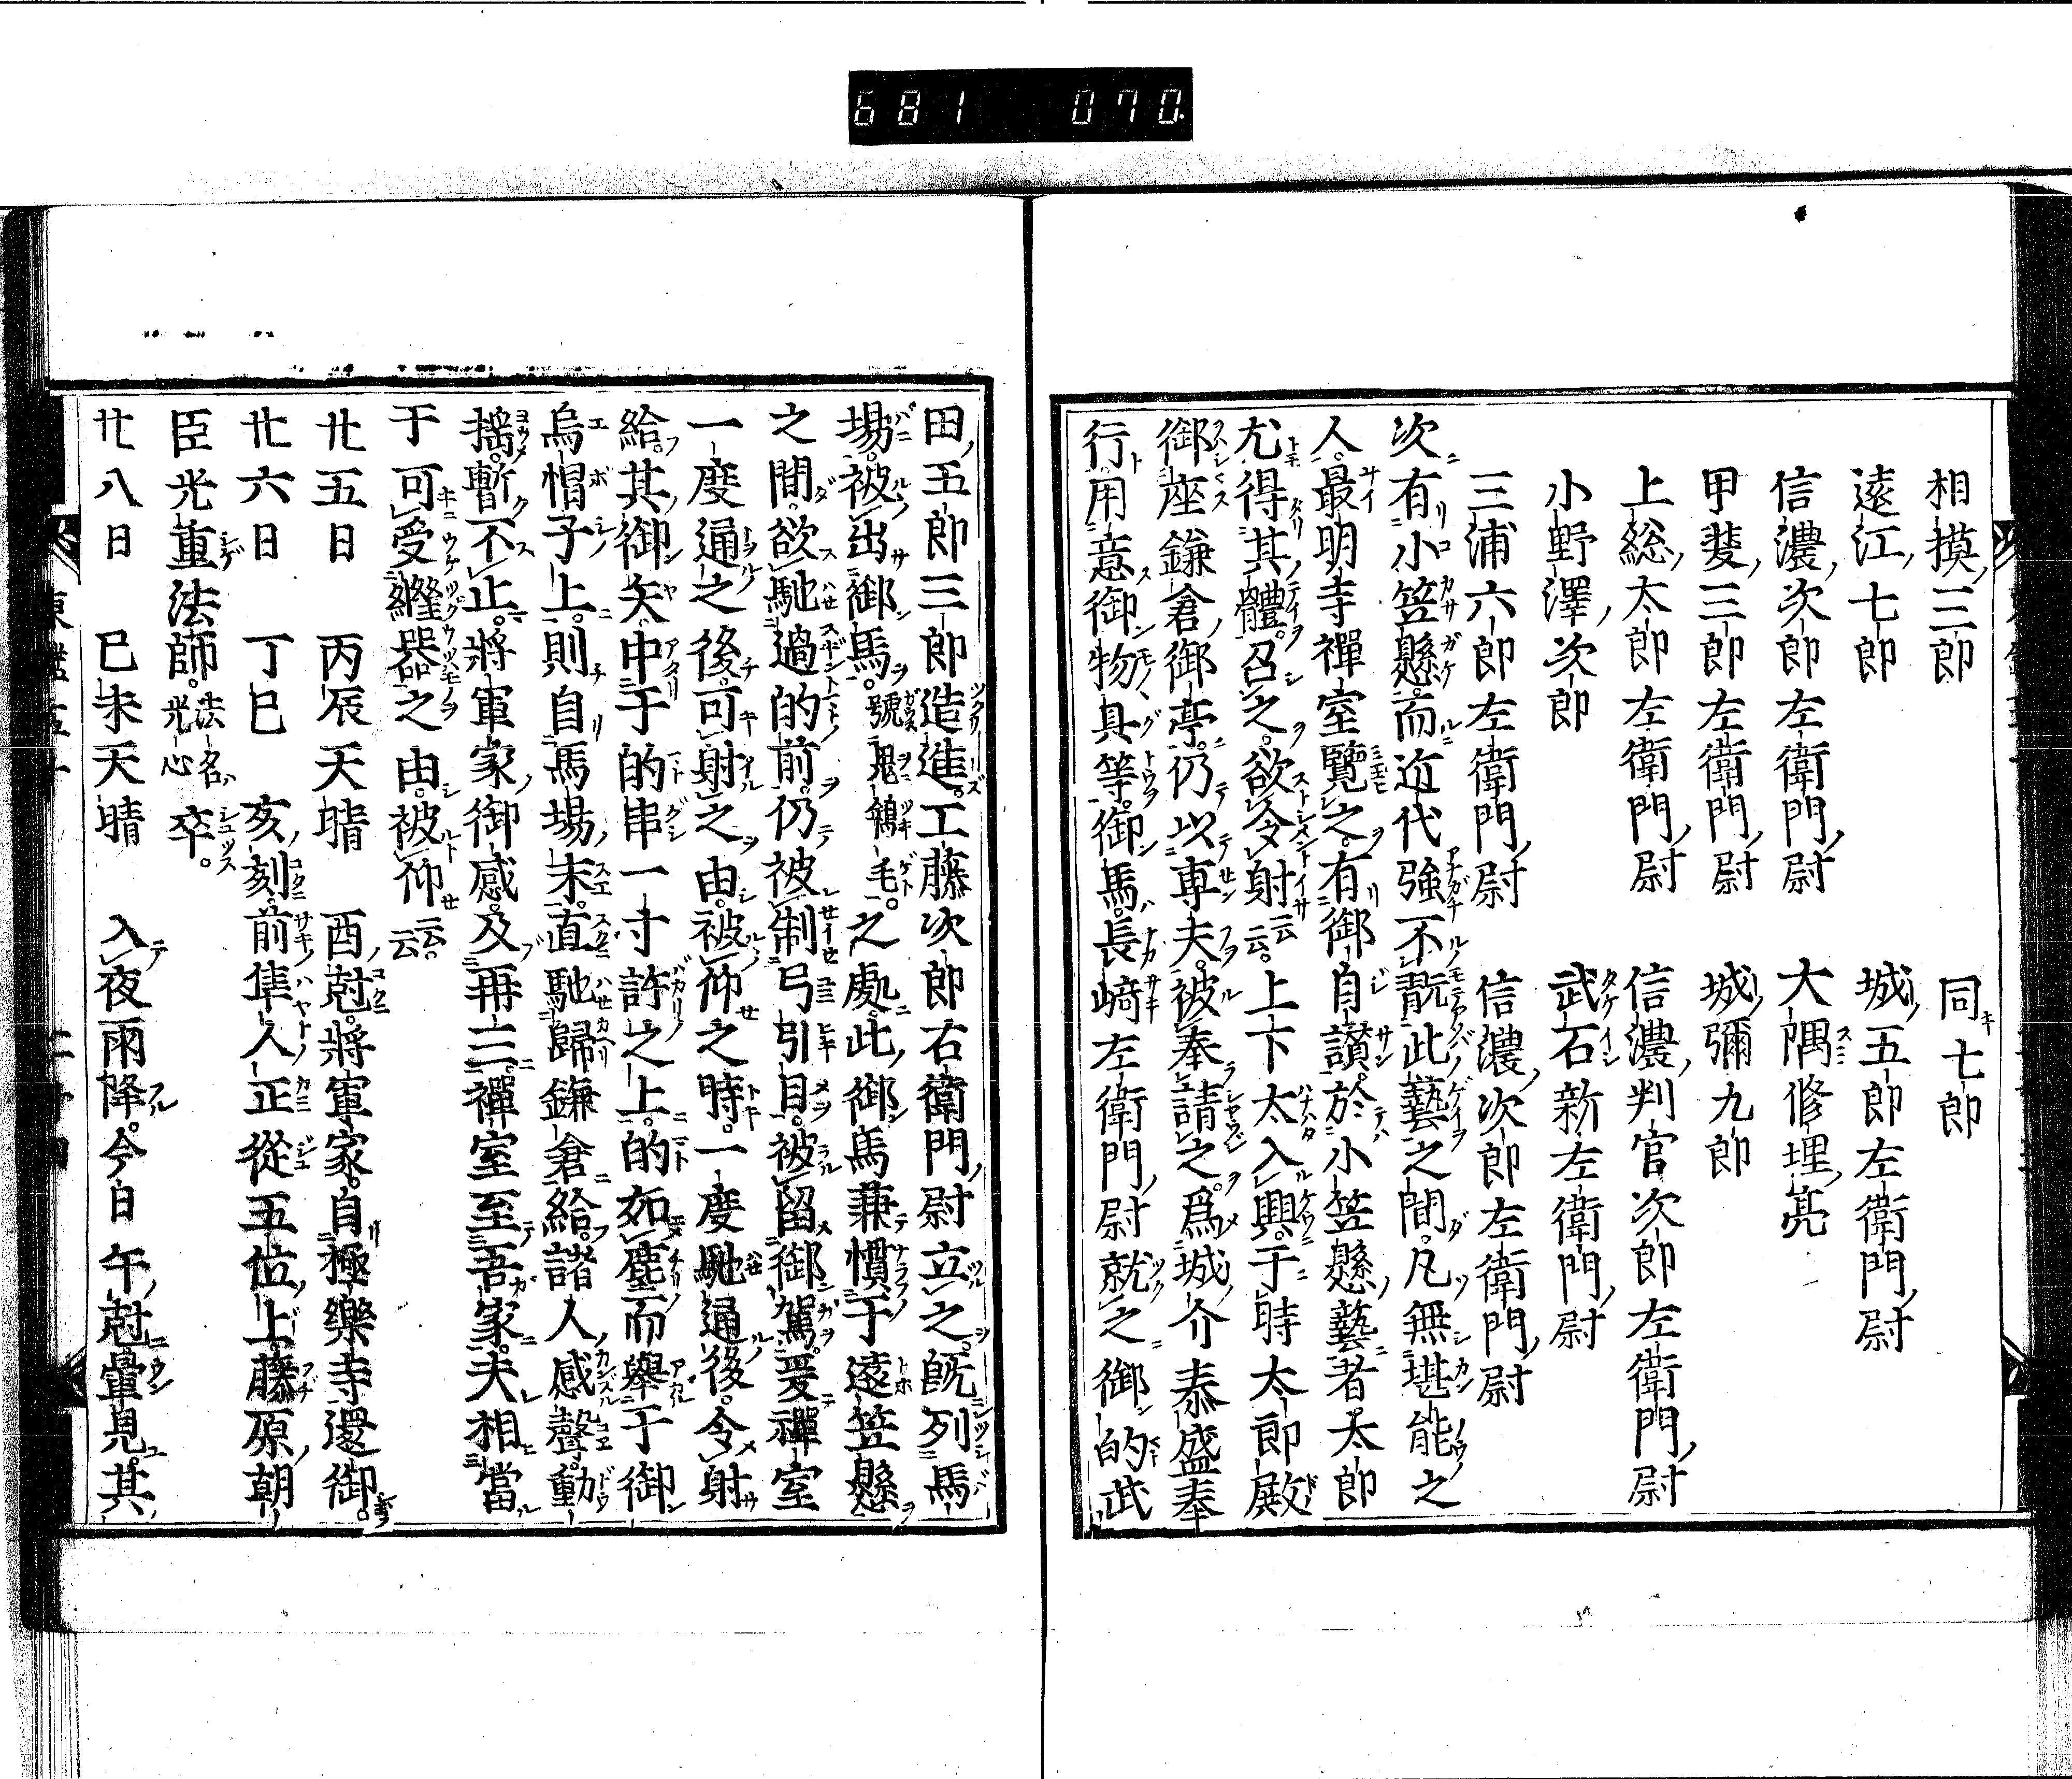 681 070.
相摸三郎　同七郎
遠江七郎　城五郎左衛門尉
信濃次郎左衛門尉　大隅修理亮
甲斐三郎左衛門尉　城彌九郎
上総太郎左衛門尉　信濃判官次郎左衛門尉
小野澤次郎　武石新左衛門尉
三浦六郎左衛門尉　信濃次郎左衛門尉
次有小笠懸而近代強不翫此藝之間。凡無堪能之
人。最明寺禪室覽之。有御自讃。於小笠懸藝者太郎
尤得其體。召之。欲令射云云。上下太入興。于時太郎殿
御座鎌倉御亭。仍以專夫。被奉請之。爲城介泰盛奉
行。用意御物具等。御馬。長﨑左衛門尉就之御的武
田五郎三郎造進。工藤次郎右衛門尉立之。旣列馬
場。被出御馬。號鬼鴾毛。之處。此御馬兼慣于遠笠懸
之間。欲馳過的前。仍被制弓引目。被留御駕。爰禪室
一度通之後。可射之由。被仰之時。一度馳通後。令射
給。其御矢中于的串一寸許之上。的如塵而擧于御
烏帽子上。則自馬場末。直馳歸鎌倉給。諸人感聲。動
揺。暫不止。將軍家御感。及再三。禪室至吾家。夫相當
于可受繼器之由。被仰云云。
廿五日　丙辰天晴　酉尅。將軍家。自極樂寺還御。
廿六日　丁巳　亥刻。前隼人正從五位上藤原朝
臣光重法師。法名光心卒。
廿八日　巳未天晴　入夜雨降。今日午尅暈見。其